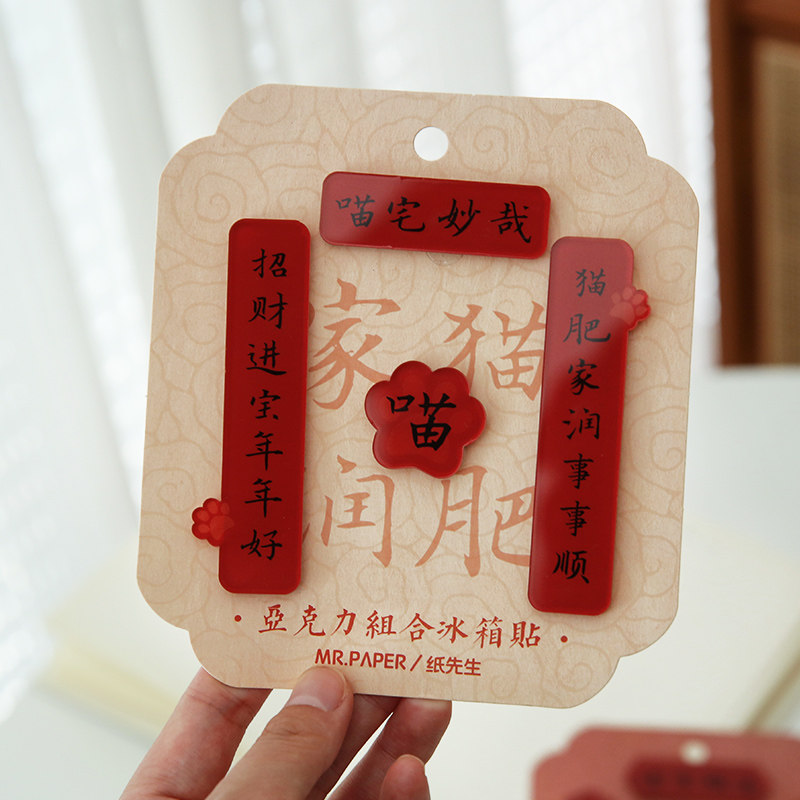 喵宅妙哉
猫肥家润事事顺
招财进宝年年好
喵
猫肥
家润
·亞克力組合冰箱貼·
MR.PAPER/纸先生